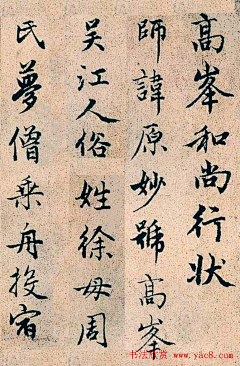 高峯和尚行状
師諱原妙號高峯
吴江人俗姓徐母周
氏夢僧乘舟投宿
书法欣赏 www.yac8.com